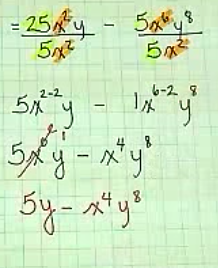 = 25x²y / 5x² - 5x⁶y⁸ / 5x²
5x²⁻²y - 1x⁶⁻²y⁸
5x⁰y¹ - x⁴y⁸
5y - x⁴y⁸